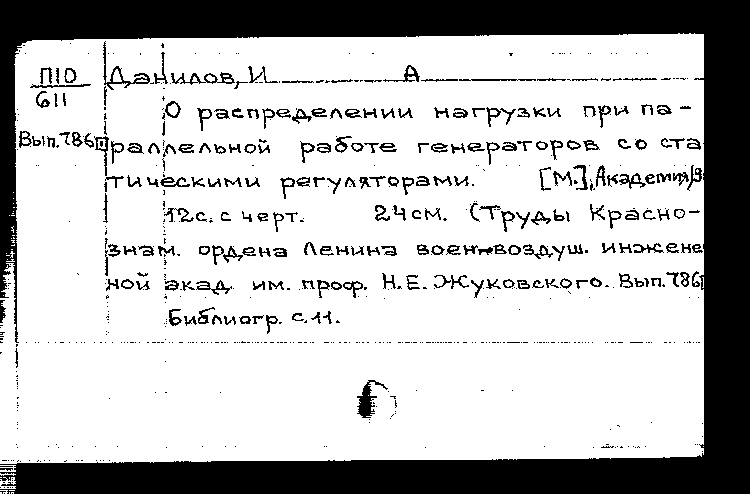 П10
611
Вып. 786
Данилов, И А
О распределении нагрузки при па-
раллельной работе генераторов со ста
тическими регуляторами. [М.], Академия,
12с. с черт. 24см. (Труды Красно-
знам. ордена Ленина воен-воздуш. инжене
ной акад. им. проф. Н.Е. Жуковского. Вып. 786
Библиогр. с. 11.